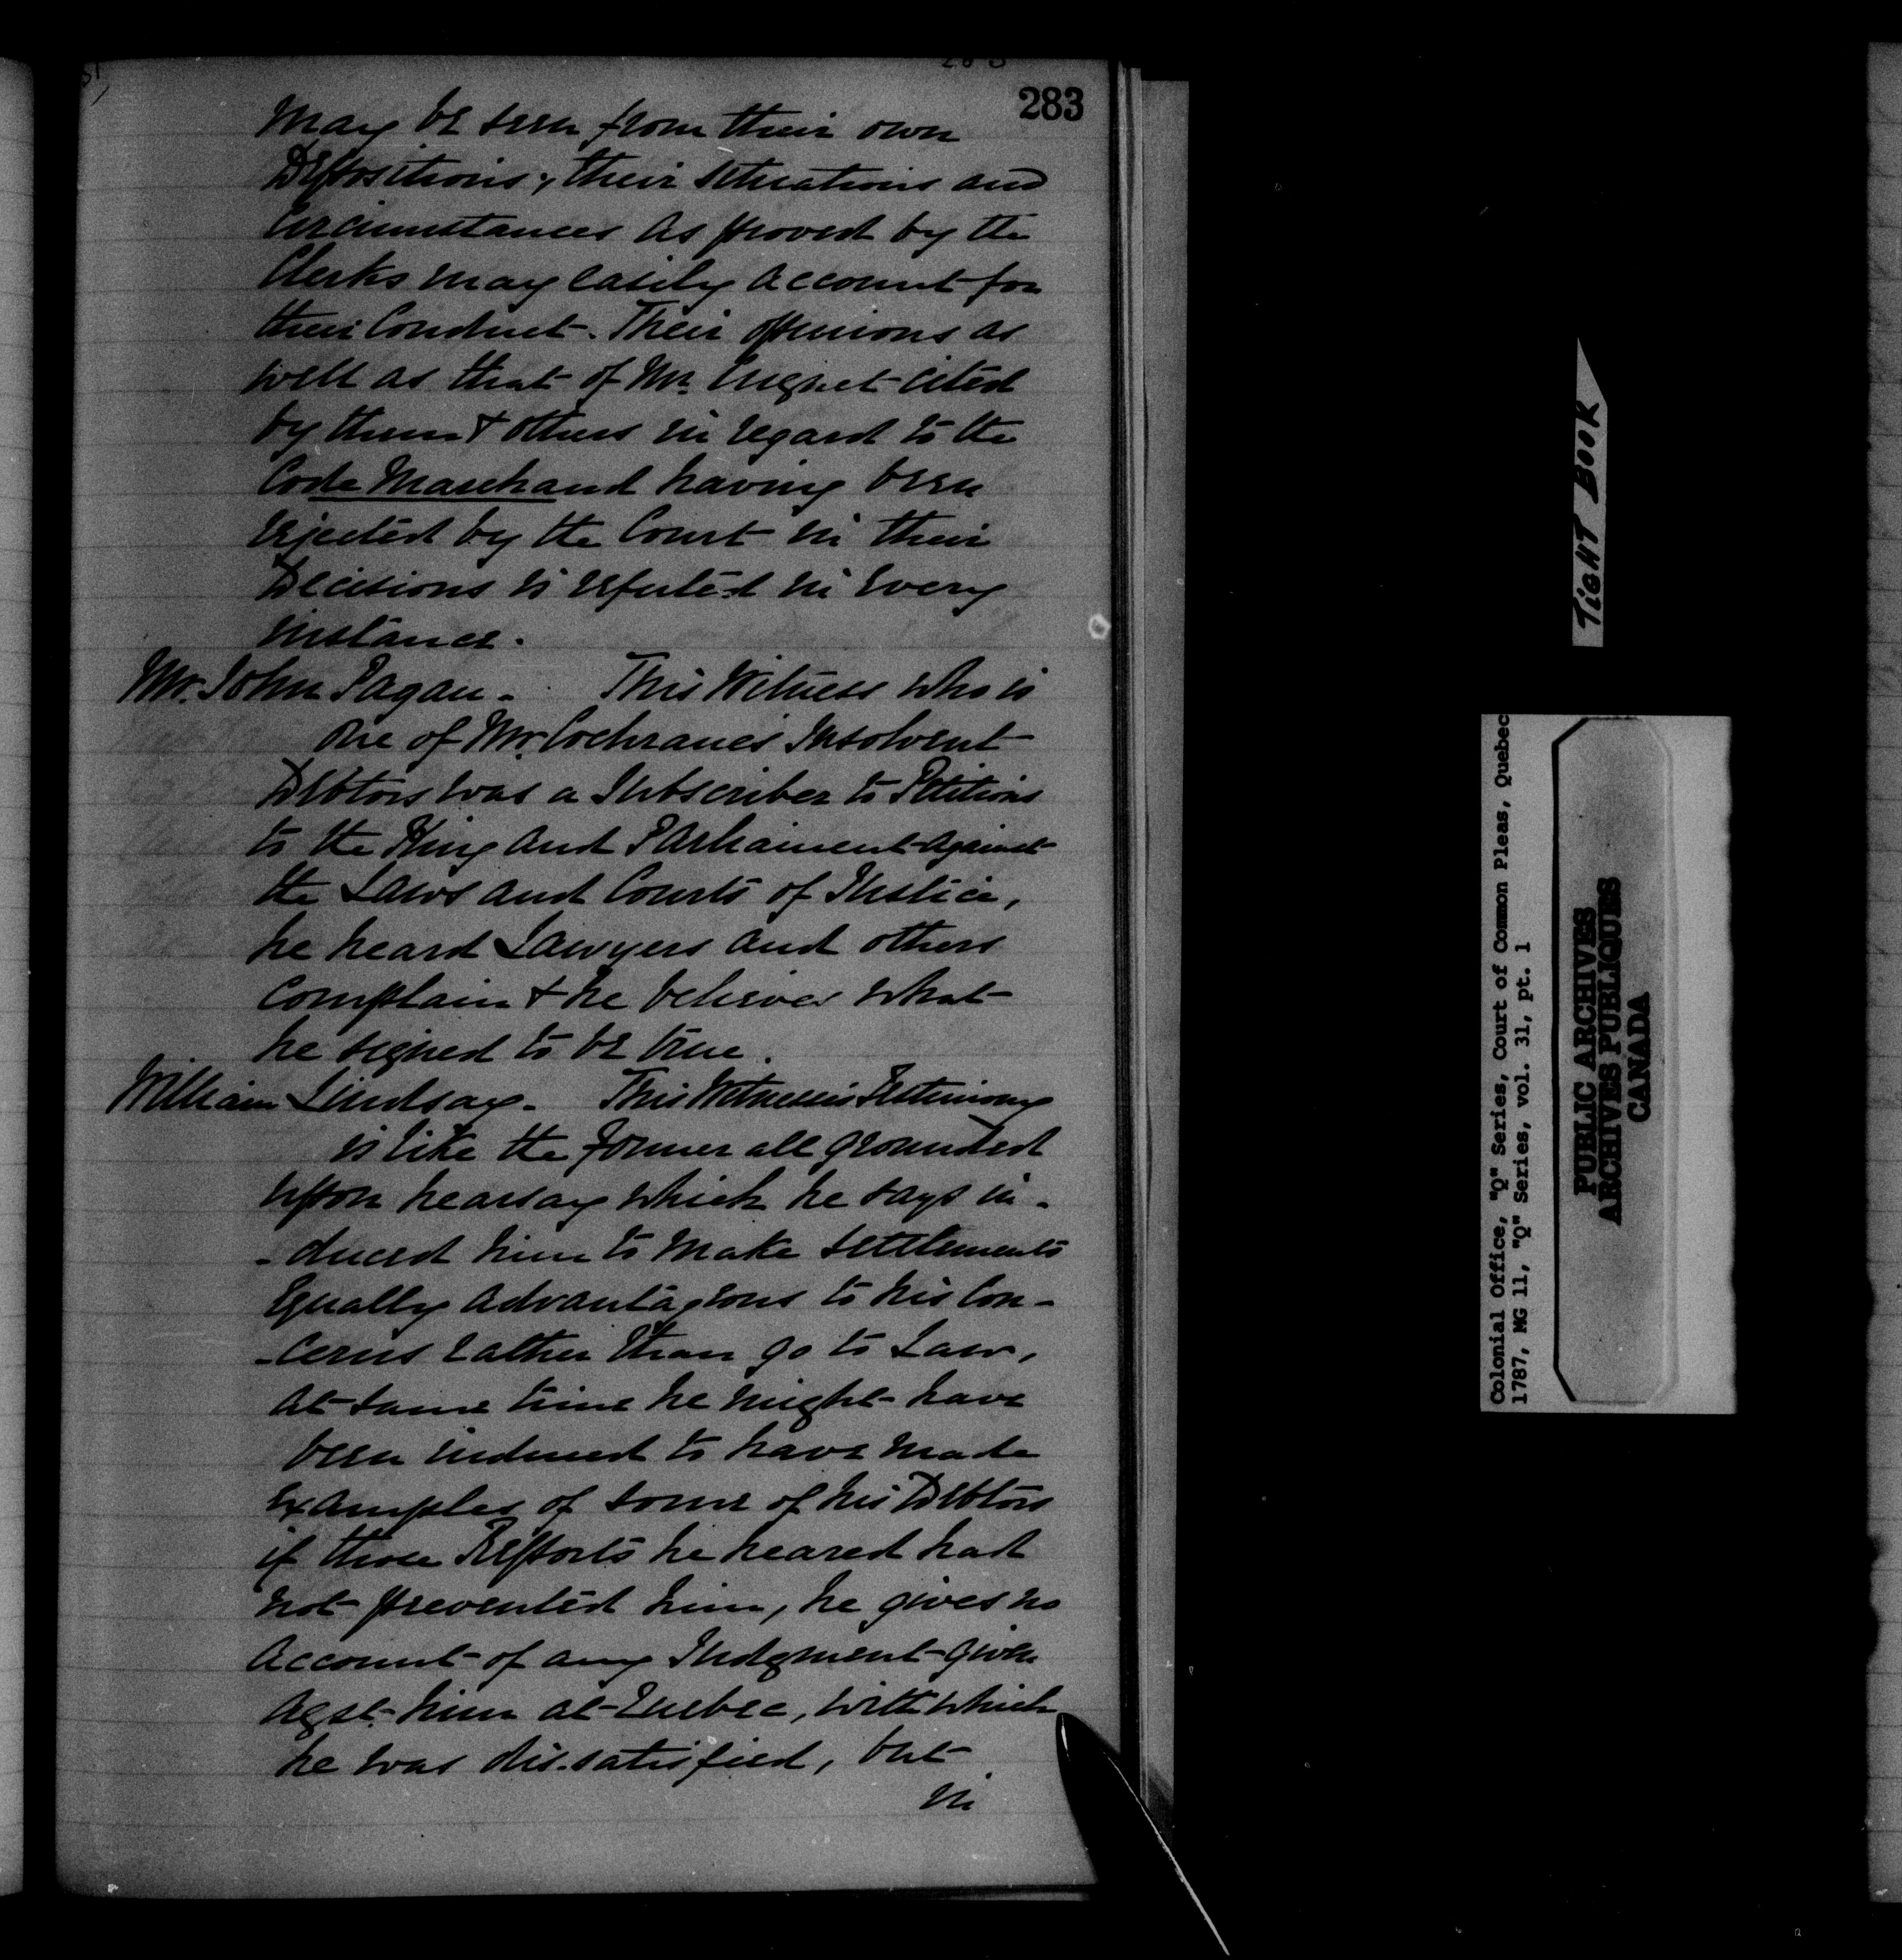 283
May be seen from their own
Depositions; their situations and
Circumstances as proved by the
Clerks may easily account for
their Conduct. Their opinions as
well as that of Mr. Cugnet cited
by them & others in regard to the
Code Marchand having been
rejected by the Court in their
Decisions is refuted in every
instance.
Mr. John Pagan. This Witness who is
one of Mr. Cochrane's Insolvent
Debtors was a Subscriber to Petitions
to the King and Parliament against
the Laws and Courts of Justice,
he heard Lawyers and others
complain & he believes what
he signed to be true.
William Lindsay. This Witnesses Testimony
is like the former all grounded
upon hearsay which he says in-
-duced him to make settlements
Equally advantageous to his Con-
-cerns rather than go to Law,
at same time he might have
been induced to have made
examples of some of his Debtors
if those Reports he heared had
not prevented him, he gives no
account of any Judgment given
agst. him at Quebec, with which
he was dis-satisfied, but
in
TIGHT BOOK
Colonial Office, "Q" Series, Court of Common Pleas, Quebec
1787, MG 11, "Q" Series, vol. 31, pt. 1
PUBLIC ARCHIVES
ARCHIVES PUBLIQUES
CANADA